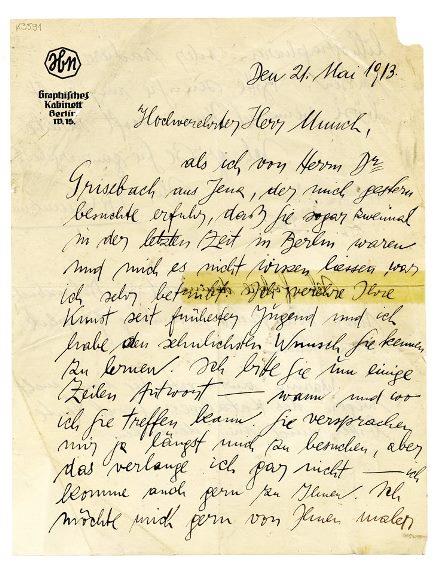 K3591
JBN
Graphisches
Kabinett
Berlin
W. 15.
Den 21. Mai 1913.
Hochverehrter Herr Munch,
als ich von Herrn Dr
Grisebach aus Jena, der mich gestern
besuchte erfuhr, daß Sie sogar zweimal
in der letzten Zeit in Berlin waren
und mich es nicht wissen liessen war
ich sehr betrübt. Ich verehre Ihre
Kunst seit frühester Jugend und ich
habe den sehnlichsten Wunsch Sie kennen
zu lernen. Ich bitte Sie um einige
Zeilen Antwort — wann und wo
ich Sie treffen kann. Sie versprachen
mir ja längst mich zu besuchen, aber
das verlange ich gar nicht — ich
komme auch gern zu Ihnen. Ich
möchte mich gern von Ihnen malen